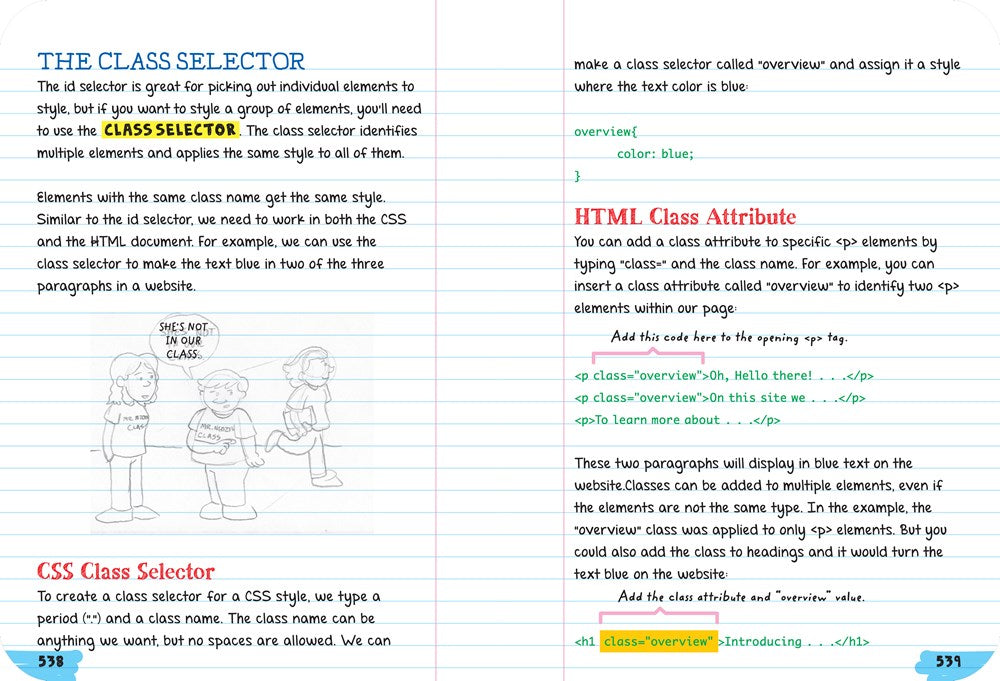 THE CLASS SELECTOR
The id selector is great for picking out individual elements to
style, but if you want to style a group of elements, you'll need
to use the CLASS SELECTOR. The class selector identifies
multiple elements and applies the same style to all of them.
Elements with the same class name get the same style.
Similar to the id selector, we need to work in both the CSS
and the HTML document. For example, we can use the
class selector to make the text blue in two of the three
paragraphs in a website.
SHE'S NOT
IN OUR
CLASS.
MR.
CLASS
MR. NGOZI'S
CLASS
CSS Class Selector
To create a class selector for a CSS style, we type a
period (".") and a class name. The class name can be
anything we want, but no spaces are allowed. We can
538
make a class selector called "overview" and assign it a style
where the text color is blue:
overview{
color: blue;
}
HTML Class Attribute
You can add a class attribute to specific <p> elements by
typing "class=" and the class name. For example, you can
insert a class attribute called "overview" to identify two <p>
elements within our page:
Add this code here to the opening <p> tag.
<p class="overview">Oh, Hello there! . . .</p>
<p class="overview">On this site we . . .</p>
<p>To learn more about . . .</p>
These two paragraphs will display in blue text on the
website.Classes can be added to multiple elements, even if
the elements are not the same type. In the example, the
"overview" class was applied to only <p> elements. But you
could also add the class to headings and it would turn the
text blue on the website:
Add the class attribute and "overview" value.
<h1 class="overview" >Introducing . . .</h1>
539